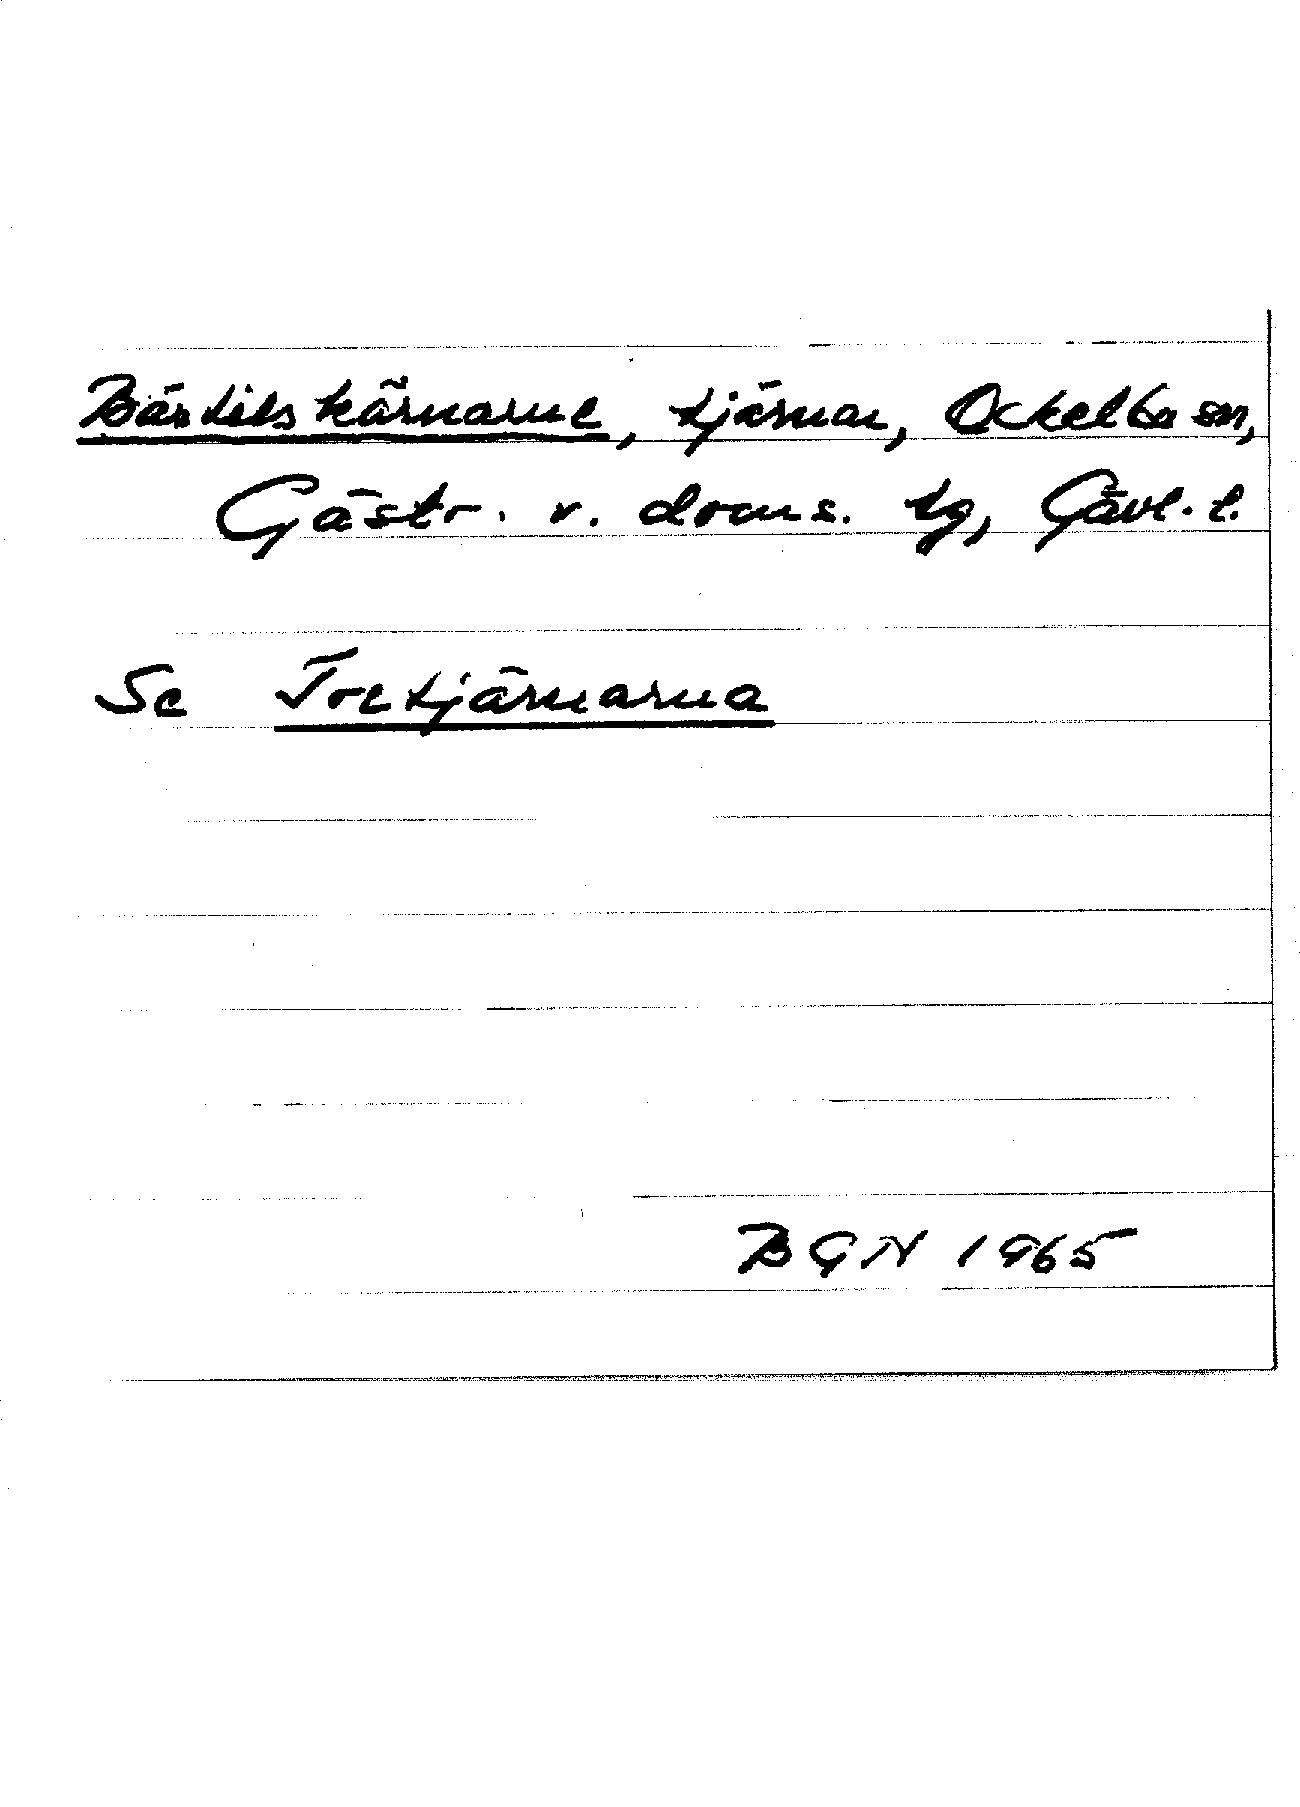 Bärtilskärnarne, tjärnar, Ockelbo sn,
Gästr. v. doms. tg, Gävl. l.
Se Tretjärnarna
BGN 1965